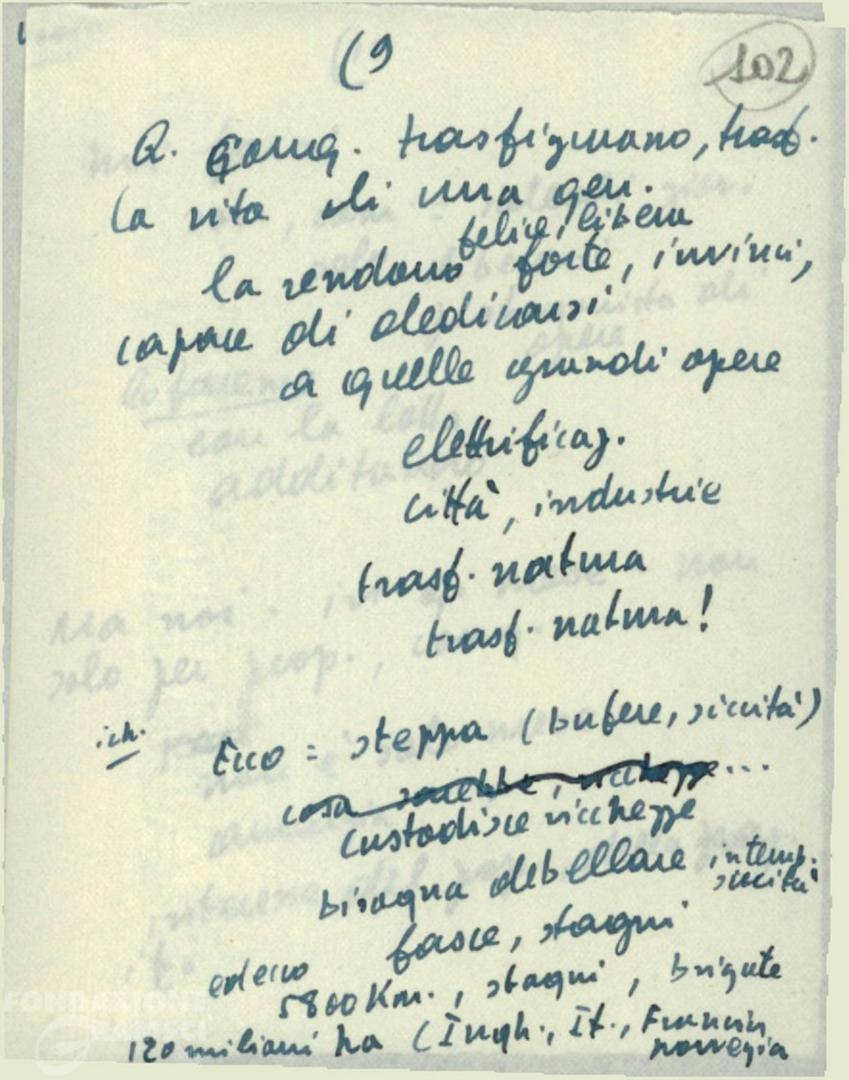 (9
102
Q. Comq. trasfigurano, trasf.
la vita di una gen.
felice, libera
la rendono forte, invinci,
capace di dedicarsi
a quelle grandi opere
elettrificaz.
città, industrie
trasf. natura
trasf. natura!
Ecco = steppa (bufere, siccità)
cosa sarebbe, ricchezze...
custodisce ricchezze
bisogna debellare intemp.
siccità
fasce, stagni
ed ecco
5800 Km., stagni, brigate
120 milioni ha (Ingh., It., Francia,
norvegia
FONDAZIONE
GRAMSCI